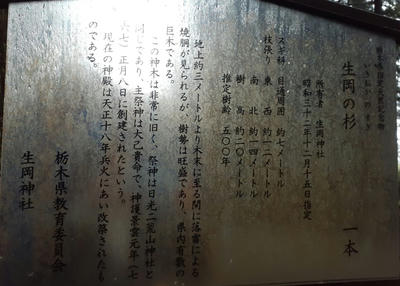 栃木県指定天然記念物
生岡の杉 一本
所有者 生岡神社
昭和三十二年十二月十五日指定
スギ科 目通周囲 約七メートル
枝張り 東西 約一二メートル
南北 約一四メートル
樹高 約二〇メートル
推定樹齢 五〇〇年
地上約三メートルより木末に至る間に落雷による
焼胴が見られるが、樹勢は旺盛であり、県内有数の
巨木である。
この神木は非常に旧く、祭神は日光二荒山神社と
同じであり、主祭神は大己貴命で、神護景雲元年(七
六七)正月八日に創建されたという。
現在の神殿は天正十八年兵火にあい改築されたも
のである。
栃木県教育委員会
生岡神社